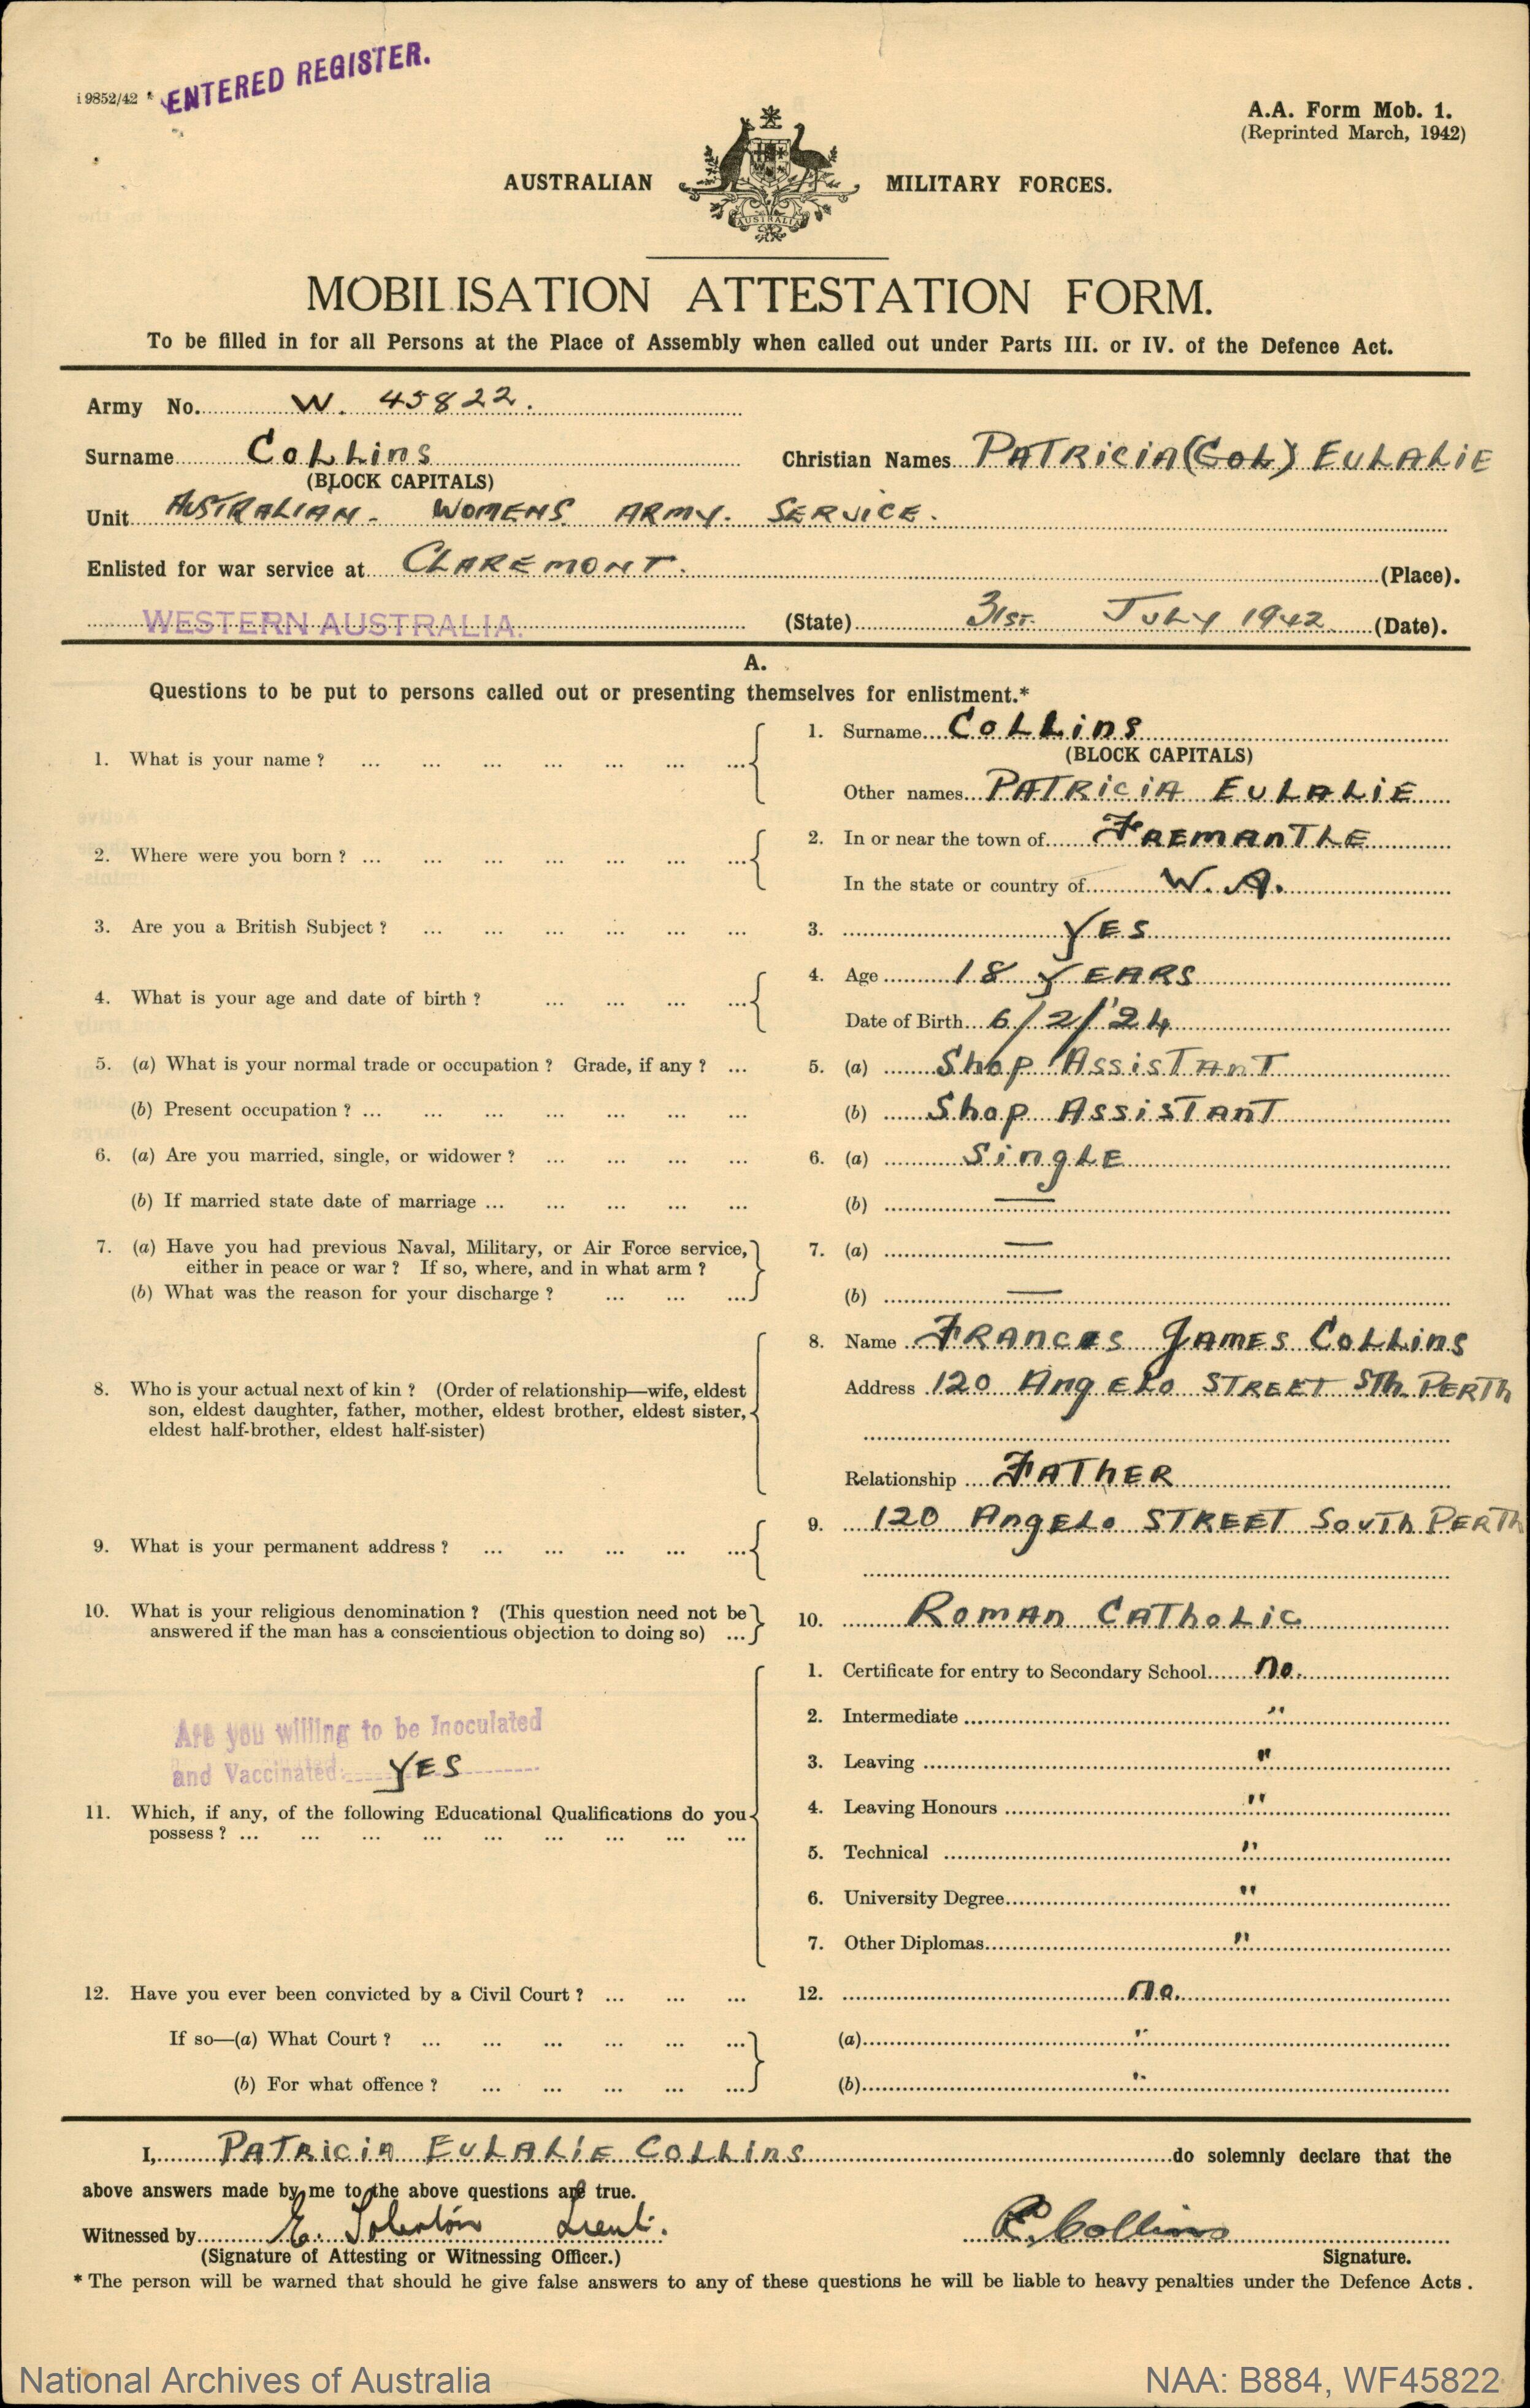 i 9852/42 * ENTERED REGISTER.
A.A. Form Mob. 1.
(Reprinted March, 1942)
AUSTRALIAN MILITARY FORCES.
AUSTRALIA
MOBILISATION ATTESTATION FORM.
To be filled in for all Persons at the Place of Assembly when called out under Parts III. or IV. of the Defence Act.
Army No. W. 45822.
Surname COLLINS Christian Names PATRICIA (COL) EULALIE
(BLOCK CAPITALS)
Unit AUSTRALIAN - WOMENS ARMY. SERVICE.
Enlisted for war service at CLAREMONT. (Place).
WESTERN AUSTRALIA. (State) 31ST. JULY 1942 (Date).
A.
Questions to be put to persons called out or presenting themselves for enlistment.*
1. What is your name ? ... 1. Surname COLLINS
(BLOCK CAPITALS)
Other names PATRICIA EULALIE
2. Where were you born ? ... 2. In or near the town of FREMANTLE
In the state or country of W. A.
3. Are you a British Subject ? ... 3. YES
4. What is your age and date of birth ? ... 4. Age 18 YEARS
Date of Birth 6/2/'24
5. (a) What is your normal trade or occupation ? Grade, if any ? ... 5. (a) Shop ASSISTANT
(b) Present occupation ? ... (b) Shop ASSISTANT
6. (a) Are you married, single, or widower ? ... 6. (a) SINGLE
(b) If married state date of marriage ... (b) —
7. (a) Have you had previous Naval, Military, or Air Force service, either in peace or war ? If so, where, and in what arm ? 7. (a) —
(b) What was the reason for your discharge ? ... (b) —
8. Who is your actual next of kin ? (Order of relationship—wife, eldest
son, eldest daughter, father, mother, eldest brother, eldest sister,
eldest half-brother, eldest half-sister)
8. Name FRANCIS JAMES COLLINS
Address 120 ANGELO STREET STH. PERTH
Relationship FATHER
9. What is your permanent address ? ... 9. 120 ANGELO STREET SOUTH PERTH
10. What is your religious denomination ? (This question need not be
answered if the man has a conscientious objection to doing so) ... 10. ROMAN CATHOLIC
Are you willing to be Inoculated
and Vaccinated: YES
11. Which, if any, of the following Educational Qualifications do you
possess ? ...
1. Certificate for entry to Secondary School no.
2. Intermediate "
3. Leaving "
4. Leaving Honours "
5. Technical "
6. University Degree "
7. Other Diplomas "
12. Have you ever been convicted by a Civil Court ? ... 12. no.
If so—(a) What Court ? ... (a) "
(b) For what offence ? ... (b) "
I, PATRICIA EULALIE COLLINS do solemnly declare that the
above answers made by me to the above questions are true.
Witnessed by E. Lieut. P. Collins
(Signature of Attesting or Witnessing Officer.) Signature.
* The person will be warned that should he give false answers to any of these questions he will be liable to heavy penalties under the Defence Acts.
National Archives of Australia NAA: B884, WF45822